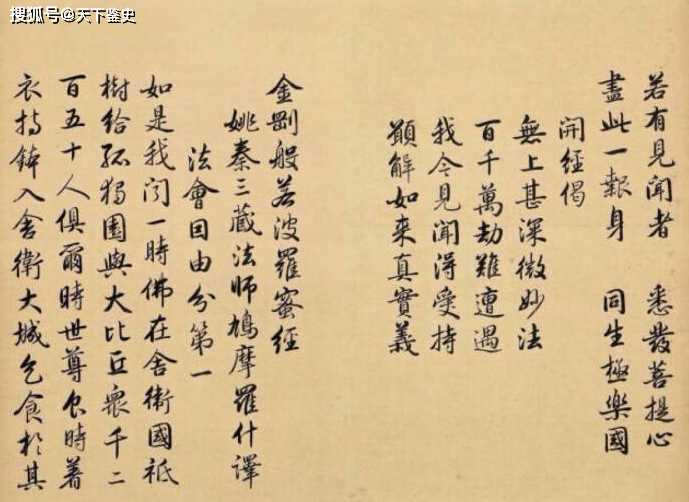 搜狐号@天下鉴史
若有見聞者 悉發菩提心
盡此一報身 同生極樂國
開經偈
無上甚深微妙法
百千萬劫難遭遇
我今見聞得受持
願解如来真實義
金剛般若波羅蜜經
姚秦三藏法師鳩摩羅什譯
法會因由分第一
如是我聞一時佛在舍衛國祇
樹給孤獨園與大比丘衆千二
百五十人俱爾時世尊食時著
衣持鉢入舍衛大城乞食於其